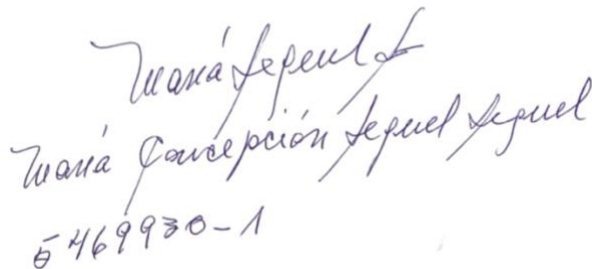 María Seguel S
María Concepción Seguel Seguel
5469930-1